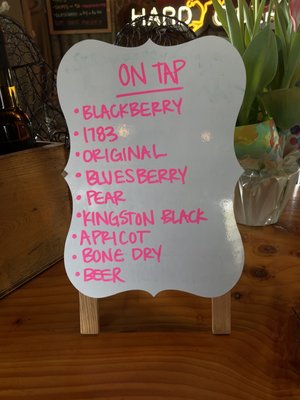 HARD
ON TAP
• BLACKBERRY
• 1783
• ORIGINAL
• BLUESBERRY
• PEAR
• KINGSTON BLACK
• APRICOT
• BONE DRY
• BEER